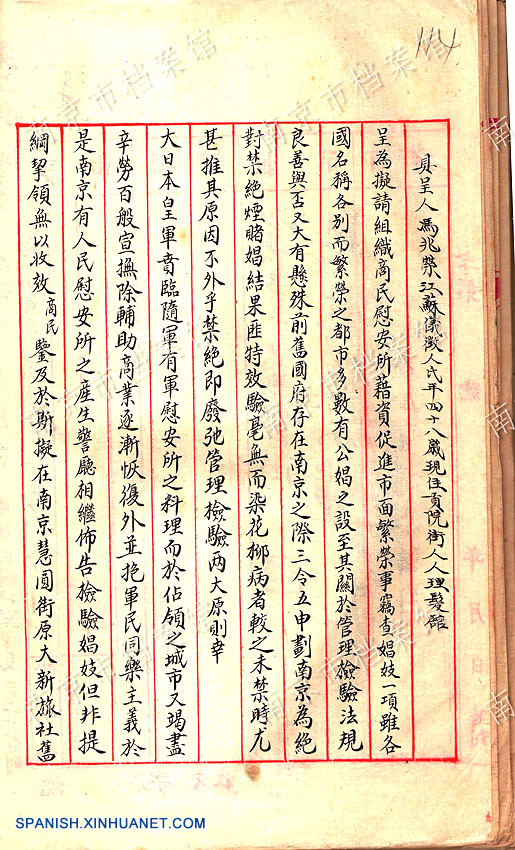 114
具呈人馮兆榮江蘇儀徵人氏年四十八歲現住貢院街人人理髮館
呈為擬請組織商民慰安所藉資促進市面繁榮事竊查娼妓一項雖各
國名稱各別而繁榮之都市多數有公娼之設至其關於管理檢驗法規
良善與否又大有懸殊前舊國府存在南京之際三令五申劃南京為絕
對禁絕煙賭娼結果匪特效驗毫無而染花柳病者較之未禁時尤
甚推其原因不外乎禁絕即廢弛管理檢驗兩大原則幸
大日本皇軍賁臨隨軍有軍慰安所之料理而於佔領之城市又竭盡
辛勞百般宣撫除輔助商業逐漸恢復外並抱軍民同樂主義於
是南京有人民慰安所之産生警廳相繼佈告檢驗娼妓但非提
綱挈領無以收效商民鑒及於斯擬在南京慧圓街原大新旅社舊
南京市档案馆
南京市档案馆
南京市档案馆
SPANISH.XINHUANET.COM